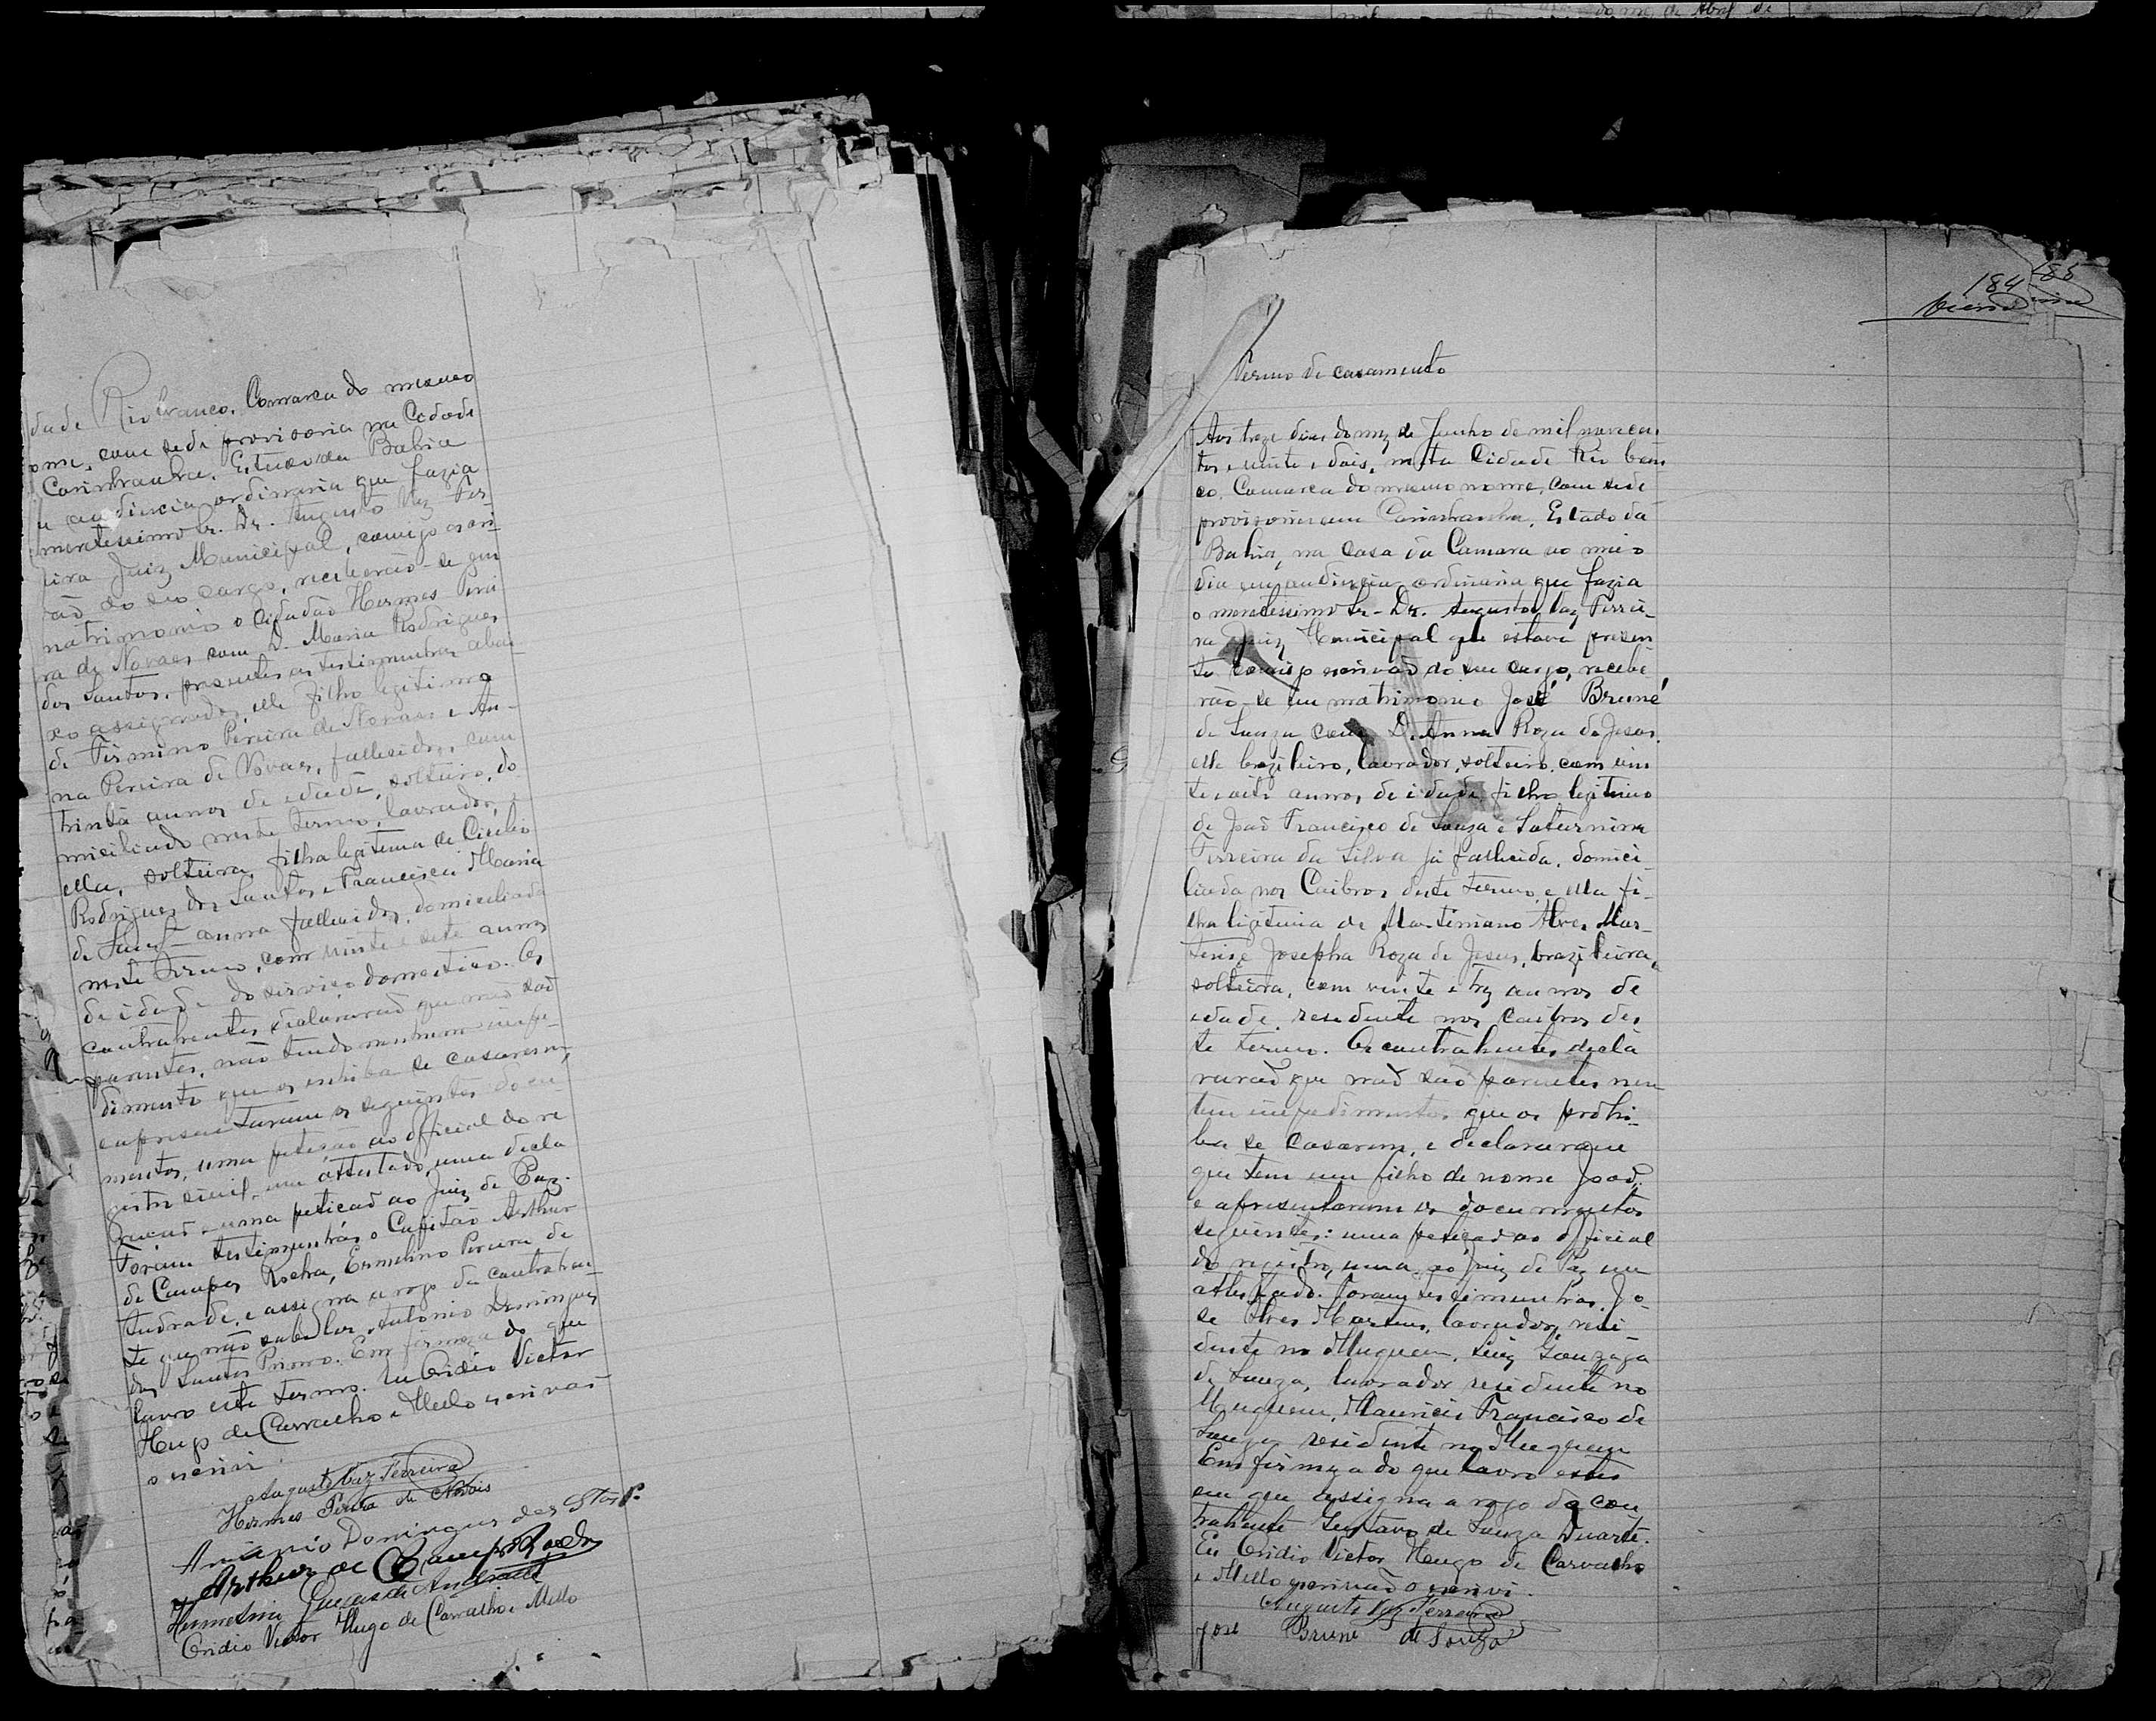 dade Rio branco, Comarca do mesmo
ome, com sede provisoria na Cidade
Carinhanha, Estado da Bahia
audiencia ordinaria que fazia
meretessimo Sr. Dr. Augusto Vaz Fer
reira Juiz Municipal, comigo escri-
vão do seu cargo, receberão-se em
matrimonio o Cidadão Hermes Perei
ra de Novaes com D. Maria Rodrigues
dos Santos, presentes as testimunhas abai
xo assignados, elle filho legitimo
de Firmino Pereira de Novaes e An-
na Pereira de Novaes, fallecidos, com
trinta annos de edade, solteiro, do
miciliado neste termo, lavrador, e
ella, solteira, filha legitima de Cicilio
Rodrigues dos Santos e Francisca Maria
de fallecidos, domiciliada
neste Termo, com vinte e sete annos
de idade do serviço domestico. Os
contrahentes declararão que não são
parentes, não tendo nenhum impe-
dimento que os inhiba de casarem,
e apresentaram os seguintes docu
mentos, uma petição ao official do re
gistro civil, um attestado, uma decla
ração e uma petição ao Juiz de Paz.
Foram testimunhas o Capitão Arthur
de Campos Rocha, Ermelino Pereira de
Andrade, e assigna a rogo da contrahen
te que não sabe ler, Antonio Domingues
dos Santos Primo. Em firmeza do que
lavro este termo. Eu Ovidio Victor
Hugo de Carvalho e Mello escrivão
o escrivi.
Augusto Vaz Ferreira
Hermes Pereira de Novais
Antonio Domingues dos Stos P.
Arthur de Campos Rocha
de Andrade
Ovidio Victor Hugo de Carvalho e Mello
184 185
Termo de casamento
Aos treze dias do mez de Junho de mil novecen
tos e vinte e dois, nesta Cidade Rio bran
co, Comarca do mesmo nome, com sede
provisoria em Carinhanha, Estado da
Bahia, na Casa da Camara ao meio
dia em audiencia ordinaria que fazia
o meretessimo Sr. Dr. Augusto Vaz Ferrei-
ra Juiz Municipal que estava presen
te comigo escrivão do seu cargo, recebe
rão-se em matrimonio José Bruné
de Souza com D. Anna Roza de Jesus.
elle brazileiro, lavrador, solteiro, com vin
te e oito annos de idade filho legitimo
de João Francisco de Souza e Saturnina
Ferreira da Silva já fallecida, domici
liada nos Caibros deste termo, e ella fi-
lha legitima de Martiniano Alves Mar-
tins e Josepha Roza de Jesus, brazileira,
solteira, com vinte e trez annos de
edade, residente nos Caibros des
te termo. Os contrahentes decla
rarão que não são parentes nem
tem impedimentos que os prohi-
ba se casarem, e declararam
que tem um filho de nome João,
e apresentaram os documentos
seguintes: uma petição ao official
do registro, uma ao Juiz de Paz um
attestado. Foram testimunhas, Jo-
se Alves Martins, lavrador, resi-
dente no Muquem, Luiz Gonzaga
de Souza, lavrador residente no
Muquem, Mauricio Francisco de
Souza residente no Muquem
Em firmeza do que lavro estes
em que assigna a rogo da con
trahente Gustavo de Souza Duarte.
Eu Ovidio Victor Hugo de Carvalho
e Mello escrivão o escrivi.
Augusto Vaz Ferreira
José Bruné de Souza